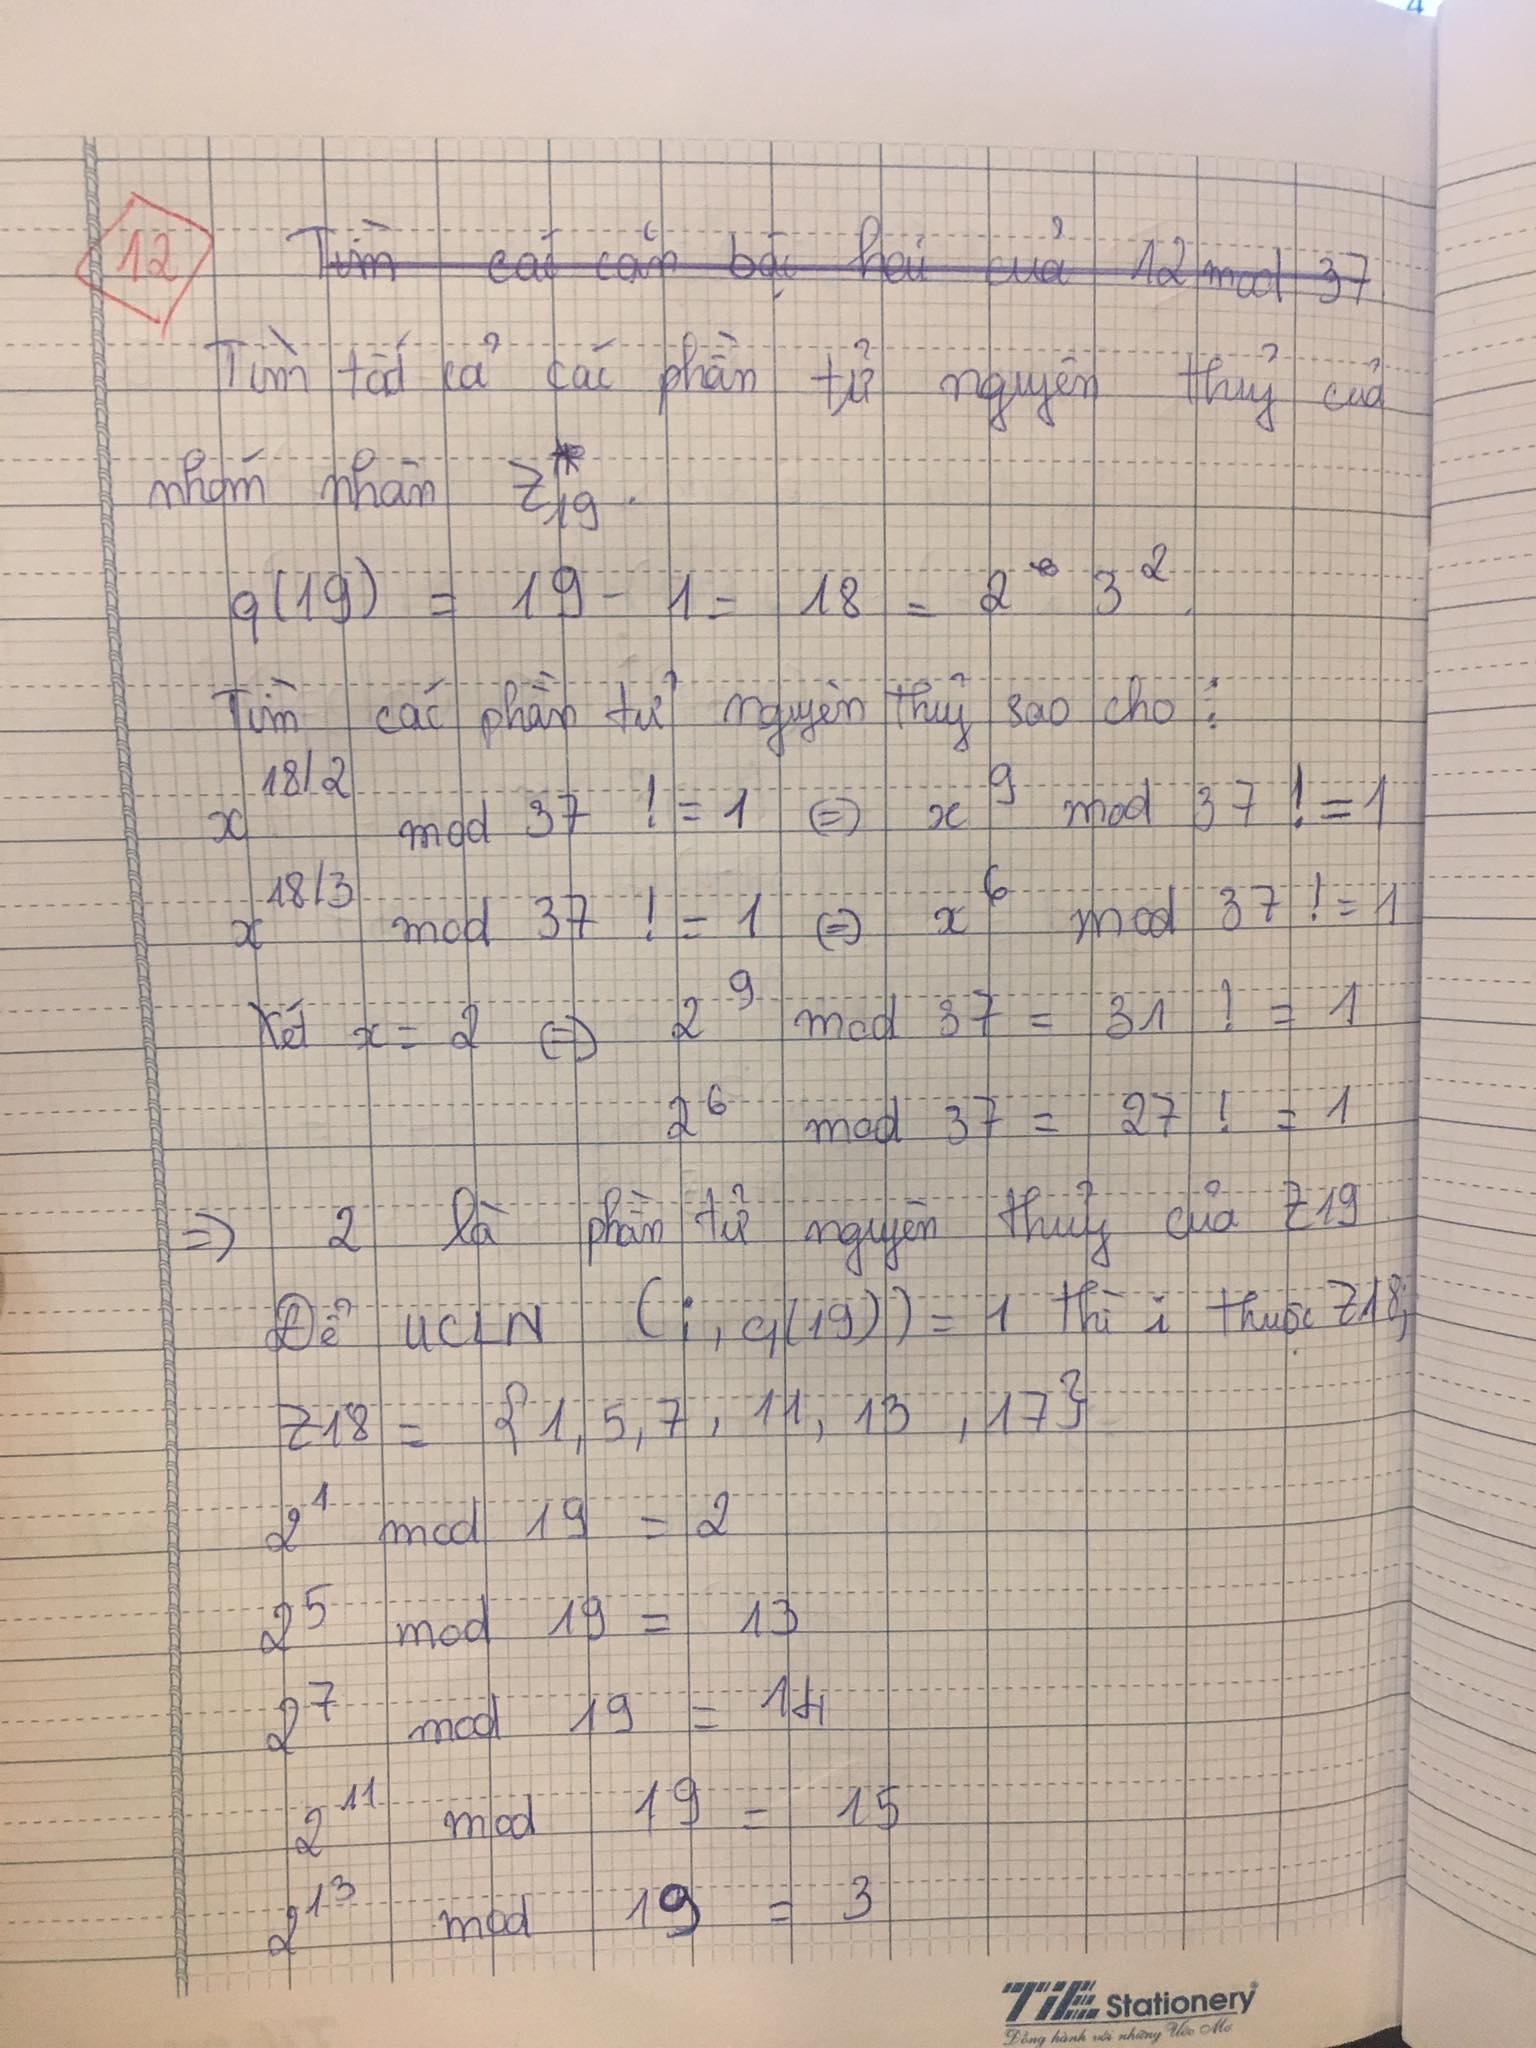 12
Tìm các căn bậc hai của 12 mod 37
Tìm tất cả các phần tử nguyên thuỷ của
nhóm nhân Z*19.
φ(19) = 19 - 1 = 18 = 2 * 3^2.
Tìm các phần tử nguyên thuỷ sao cho:
x^18/2 mod 37 != 1 (=) x^9 mod 37 != 1
x^18/3 mod 37 != 1 (=) x^6 mod 37 != 1
Xét x = 2 (=) 2^9 mod 37 = 31 != 1
2^6 mod 37 = 27 != 1
=> 2 là phần tử nguyên thuỷ của Z19
Để UCLN (i, φ(19)) = 1 thì i thuộc Z18;
Z18 = {1, 5, 7, 11, 13, 17}
2^1 mod 19 = 2
2^5 mod 19 = 13
2^7 mod 19 = 14
2^11 mod 19 = 15
2^13 mod 19 = 3
TiE Stationery
Đồng hành với những Ước Mơ